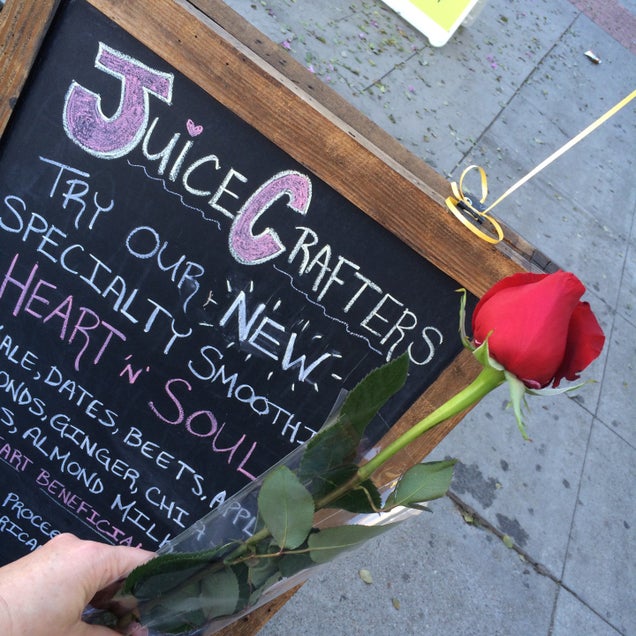 Juice Crafters
Try our New
Specialty Smoothi
Heart 'n' Soul
ale, Dates, Beets, Appl
onds, Ginger, Chia
s, Almond Milk
eart Beneficial
Procee
rica